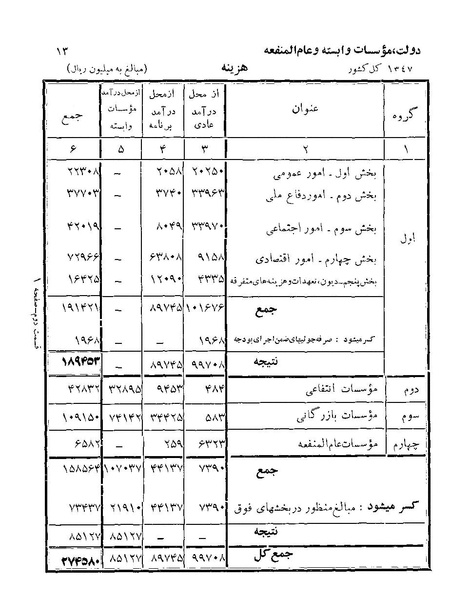 ۱۳ دولت، مؤسسات وابسته وعام‌المنفعه
۱۳۴۷ کل کشور هزینه (مبالغ به میلیون ریال)
گروه عنوان از محل درآمد عادی از محل درآمد برنامه از محل درآمد مؤسسات وابسته جمع
۱ ۲ ۳ ۴ ۵ ۶
اول
بخش اول - امور عمومی ۲۰۲۵۰ ۲۰۵۸ - ۲۲۳۰۸
بخش دوم - امور دفاع ملی ۳۳۹۶۳ ۳۷۴۰ - ۳۷۷۰۳
بخش سوم - امور اجتماعی ۳۳۹۷۰ ۸۰۴۹ - ۴۲۰۱۹
بخش چهارم - امور اقتصادی ۹۱۵۸ ۶۳۸۰۸ - ۷۲۹۶۶
بخش پنجم - دیون، تعهدات و هزینه‌های متفرقه ۴۳۳۵ ۱۲۰۹۰ - ۱۶۴۲۵
جمع ۱۰۱۶۷۶ ۸۹۷۴۵ - ۱۹۱۴۲۱
کسر میشود : صرفه جوئیهای ضمن اجرای بودجه ۱۹۶۸ - - ۱۹۶۸
نتیجه ۹۹۷۰۸ ۸۹۷۴۵ - ۱۸۹۴۵۳
دوم مؤسسات انتفاعی ۴۸۴ ۹۴۵۳ ۳۲۸۹۵ ۴۲۸۳۲
سوم مؤسسات بازرگانی ۵۸۳ ۳۴۴۲۵ ۷۴۱۴۲ ۱۰۹۱۵۰
چهارم مؤسسات عام‌المنفعه ۶۳۲۳ ۲۵۹ - ۶۵۸۲
جمع ۷۳۹۰ ۴۴۱۳۷ ۱۰۷۰۳۷ ۱۵۸۵۶۴
کسر میشود : مبالغ منظور در بخشهای فوق ۷۳۹۰ ۴۴۱۳۷ ۲۱۹۱۰ ۷۳۴۳۷
نتیجه - - ۸۵۱۲۷ ۸۵۱۲۷
جمع کل ۹۹۷۰۸ ۸۹۷۴۵ ۸۵۱۲۷ ۲۷۴۵۸۰
قسمت دوم - صفحه ۱